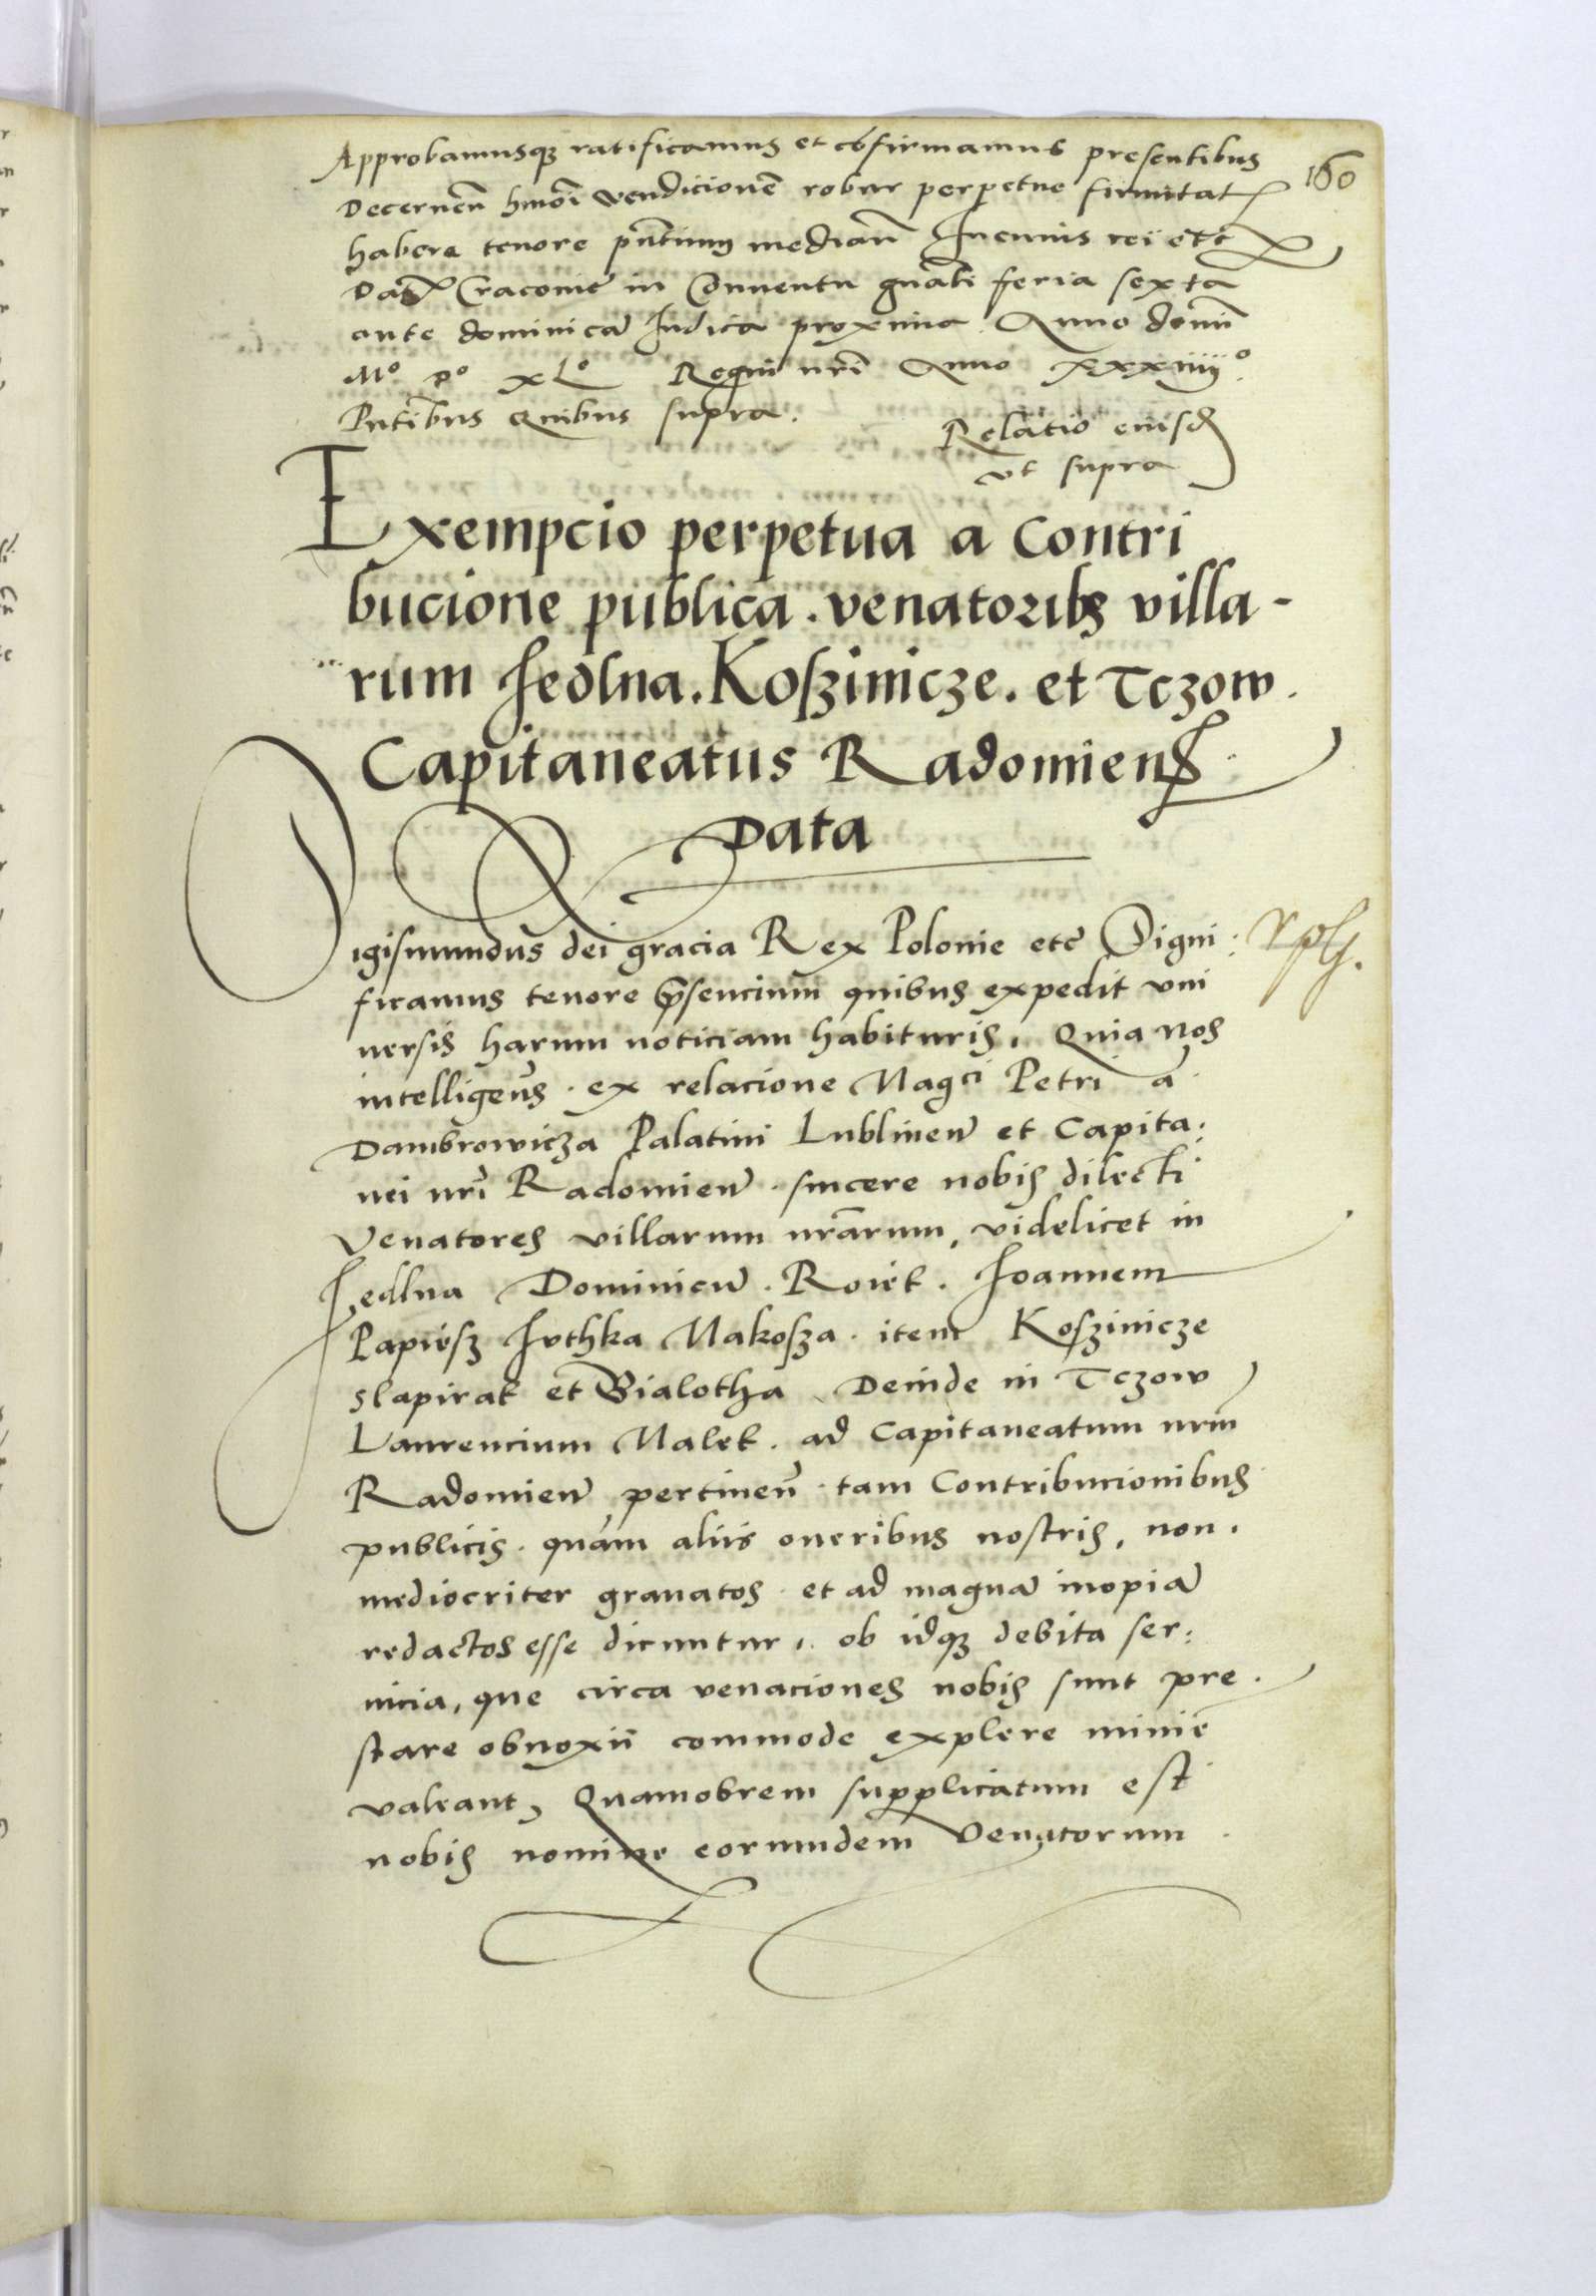 Approbamusqȝ ratificamus et cōfirmamus presentibus
160
Decernen̄ hmōi vendicionē robur perpetue firmitatꝭ
habere tenore pn̄tium median̄ In cuius rei etc̄
Datꝭ Cracovie in Conventu gn̄ali feria sexta
ante dominicā Iudica proxima. Anno domīi
Mº Dº xLº Regni nr̄i Anno xxxiiijº.
Pn̄tibus Quibus supra.
Relatio eiusd̄
vt supra
Exempcio perpetua a Contri
bucione publica. venatoribȝ villa-
rum Jedlna. Koszinicze. et Tczow.
Capitaneatus Radomienꝭ.
Data
Sigismundus dei gracia Rex Polonie etc̄ Signi:
ficamus tenore p̄sencium quibus expedit vni
uersis harum noticiam habituris, Quia nos
intelligen̄s. ex relacione Magci Petri a
Dambrowicza Palatini Lublinen̄ et Capita:
nei nr̄i Radomien̄. sincere nobis dilecti
Venatores villarum nr̄arum, videlicet in
Jedlna Dominicū. Rozek. Joannem
Papiesz Juthka Makosza. item Koszinicze
Slapirak et Bialotha Deinde in Tczow
Laurencium Malek. ad Capitaneatum nrm̄
Radomien̄ pertinen̄. tam Contribucionibus
publicis. quàm aliis oneribus nostris, non.
mediocriter grauatos. et ad magnā inopiā
redactos esse dicuntur, ob idqȝ debita ser:
uicia, que circa venaciones nobis sunt pre.
stare obnoxii commode explere minie͞
valeant, Quamobrem supplicatum est
nobis nomine eorumdem Venatorum.